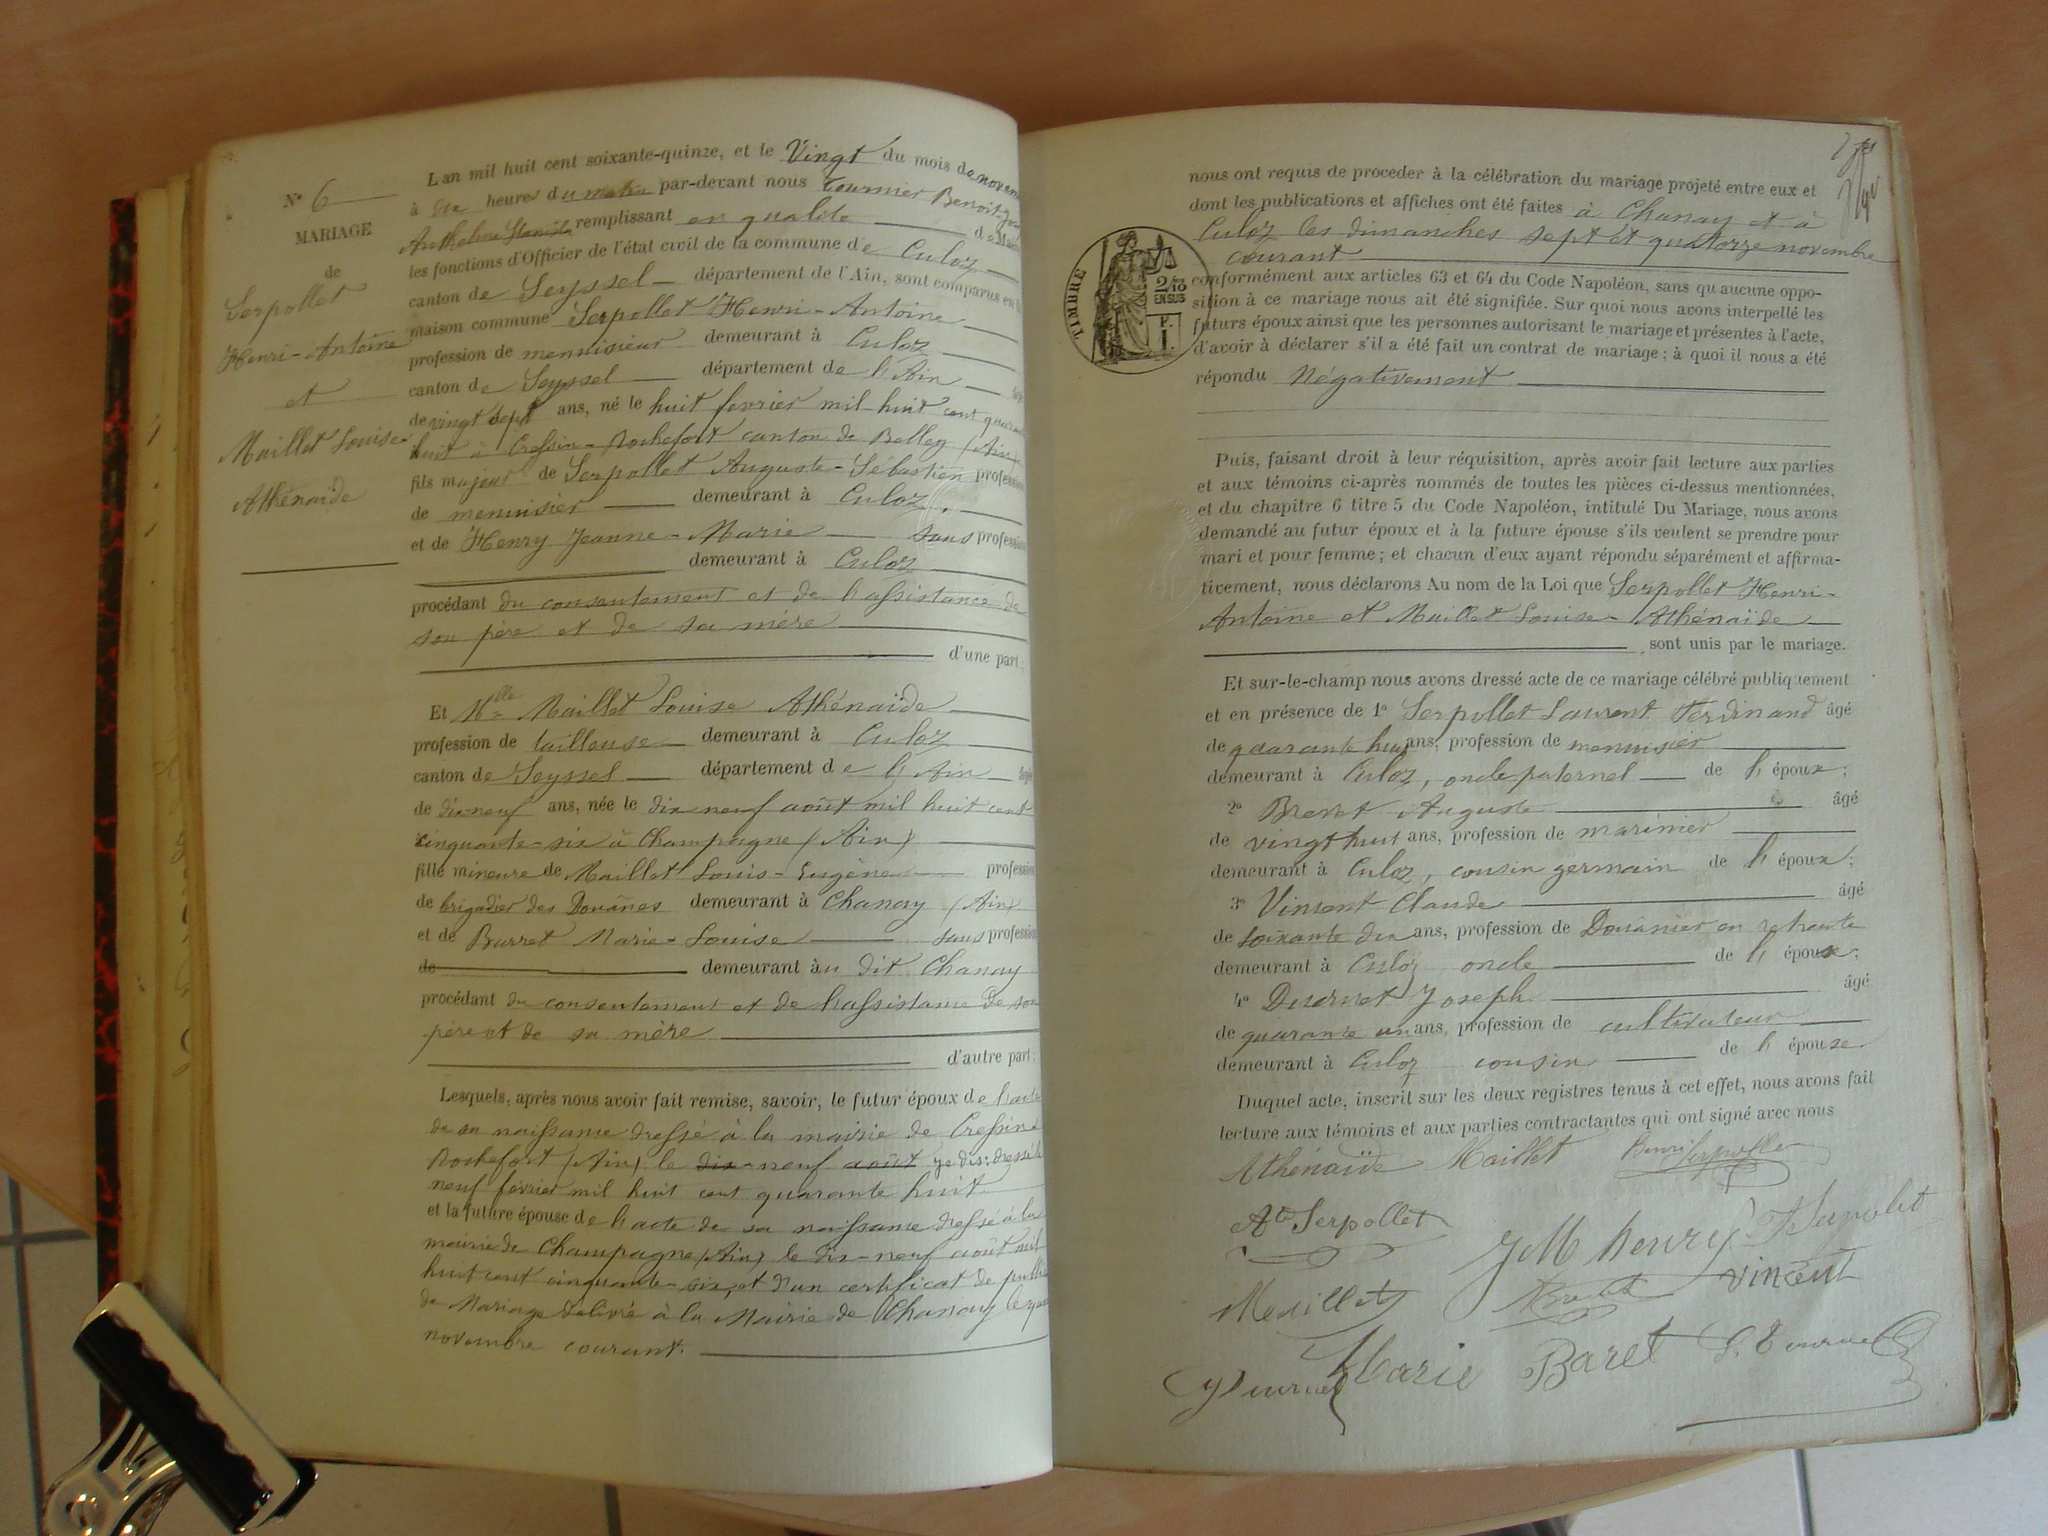 N° 6
MARIAGE
de
Serpollet
Henri-Antoine
et
Maillet Louise-
Athénaïde
L'an mil huit cent soixante-quinze, et le Vingt du mois de novem
à heures du matin par-devant nous Tournier Benoit
Anthelme Stanislas remplissant en qualité de
les fonctions d'Officier de l'état civil de la commune de Culoz
canton de Seyssel département de l'Ain, sont comparus en
maison commune Serpollet Henri-Antoine
profession de menuisieur demeurant à Culoz
canton de Seyssel département de l'Ain
de vingt sept ans, né le huit fevrier mil huit cent quaran
huit à Cressin-Rochefort canton de Belley (Ain)
fils majeur de Serpollet Auguste-Sébastien profession
de menuisier demeurant à Culoz,
et de Henry Jeanne-Marie sans profession
demeurant à Culoz
procédant du consentement et de l'assistance de
son père et de sa mère
d'une part;
Et Mlle Maillet Louise Athénaïde
profession de tailleuse demeurant à Culoz
canton de Seyssel département de l'Ain âgée
de dix neuf ans, née le dix neuf août mil huit cent
cinquante-six à Champagne (Ain)
fille mineure de Maillet Louis-Eugène profession
de brigadier des Douanes demeurant à Chanay (Ain)
et de Burret Marie-Louise sans profession
de demeurant àu dit Chanay
procédant du consentement et de l'assistance de son
père et de sa mère
d'autre part;
Lesquels, après nous avoir fait remise, savoir, le futur époux de l'acte
de sa naissance dressé à la mairie de Cressin
Rochefort (Ain) le dix-neuf août je dis: dressé le
neuf fevrier mil huit cent quarante huit
et la future épouse de l'acte de sa naissance dressé à la
mairie de Champagne (Ain) le dix-neuf août mil
huit cent cinquante-six, et d'un certificat de publi
de Mariage délivré à la Mairie de Chanay le
novembre courant.
nous ont requis de proceder à la célébration du mariage projeté entre eux et
dont les publications et affiches ont été faites à Chanay et à
Culoz les dimanches sept et quatorze novembre
courant
TIMBRE
2/10
EN SUS
F.
1.
conformément aux articles 63 et 64 du Code Napoléon, sans qu'aucune oppo-
sition à ce mariage nous ait été signifiée. Sur quoi nous avons interpellé les
futurs époux ainsi que les personnes autorisant le mariage et présentes à l'acte,
d'avoir à déclarer s'il a été fait un contrat de mariage; à quoi il nous a été
répondu Négativement
Puis, faisant droit à leur réquisition, après avoir fait lecture aux parties
et aux témoins ci-après nommés de toutes les pièces ci-dessus mentionnées,
et du chapitre 6 titre 5 du Code Napoléon, intitulé Du Mariage, nous avons
demandé au futur époux et à la future épouse s'ils veulent se prendre pour
mari et pour femme; et chacun d'eux ayant répondu séparément et affirma-
tivement, nous déclarons Au nom de la Loi que Serpollet Henri-
Antoine et Maillet Louise-Athénaïde
sont unis par le mariage.
Et sur-le-champ nous avons dressé acte de ce mariage célébré publiquement
et en présence de 1° Serpollet Laurent Ferdinand âgé
de quarante huit ans, profession de menuisier
demeurant à Culoz, oncle paternel de l'époux;
2° Brevet Auguste âgé
de vingt huit ans, profession de marinier
demeurant à Culoz, cousin germain de l'époux;
3° Vincent Claude âgé
de soixante dix ans, profession de Douanier en retraite
demeurant à Culoz oncle de l'époux;
4° Ducruet Joseph âgé
de quarante un ans, profession de cultivateur
demeurant à Culoz cousin de l'épouse
Duquel acte, inscrit sur les deux registres tenus à cet effet, nous avons fait
lecture aux témoins et aux parties contractantes qui ont signé avec nous
Athénaïde Maillet Henri Serpollet
Ate Serpollet
J M henry F Serpollet
Maillet vincent
Marie Baret